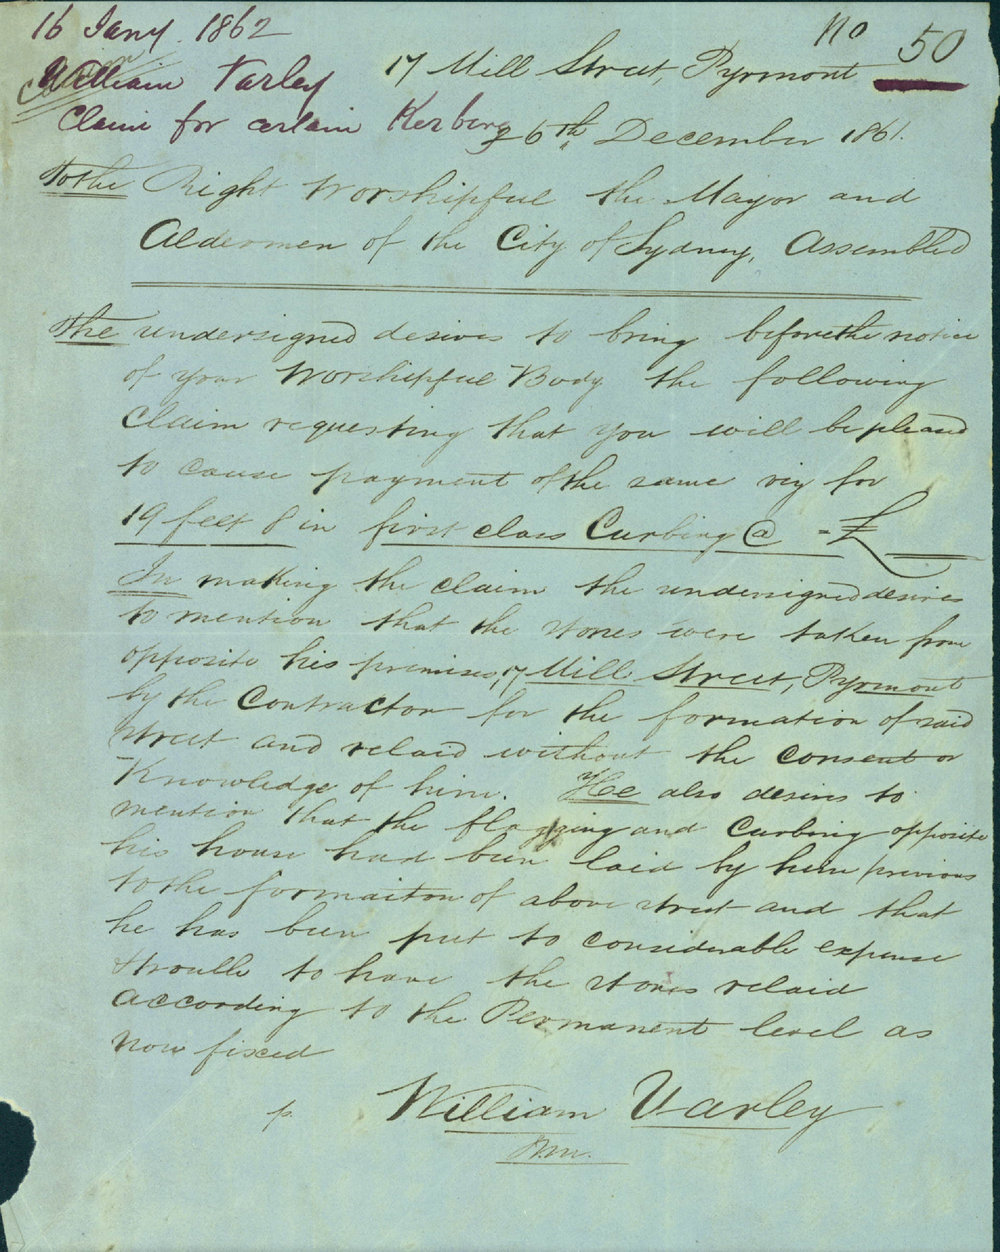 16 Jany 1862
No 50
William Varley
17 Mill Street, Pyrmont
Claim for certain Kerbing
26th December 1861.
To the Right Worshipful the Mayor and
Aldermen of the City of Sydney, Assembled
The undersigned desires to bring before the notice
of your Worshipful Body the following
Claim requesting that you will be pleased
to cause payment of the same viz for
19 feet 8 in first class Curbing @ = £
In making the claim the undersigned desires
to mention that the stones were taken from
opposite his premises, 17 Mill Street, Pyrmont
by the Contractor for the formation of said
street and relaid without the consent or
Knowledge of him. He also desires to
mention that the flagging and Curbing opposite
his house had been laid by him previous
to the formaiton of above street and that
he has been put to considerable expense
& trouble to have the stones relaid
according to the Permanent level as
now fixed
p. William Varley